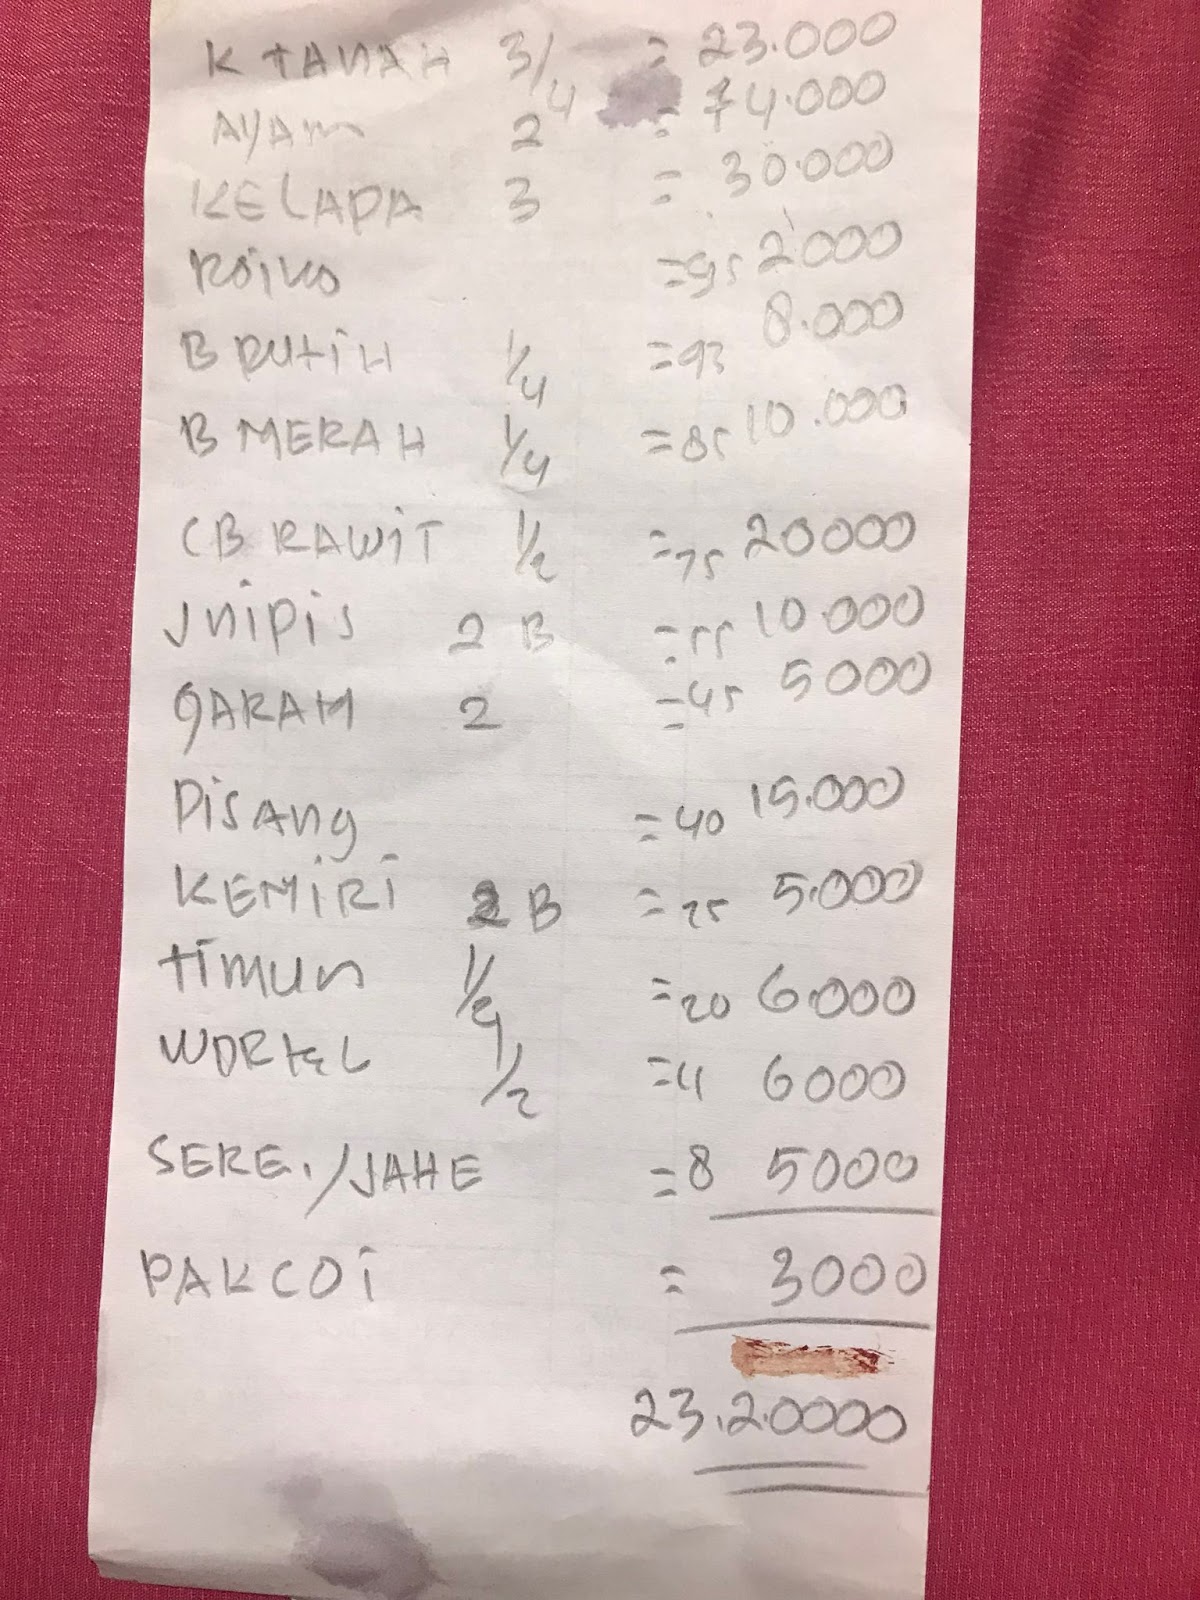 K TANAH 3/4 = 23.000
AYAM 2 = 74.000
KELAPA 3 = 30.000
ROiKO =95 2000
B PUTiH 1/4 =93 8.000
B MERAH 1/4 =85 10.000
CB RAWiT 1/2 =75 20000
Jnipis 2 B =55 10.000
GARAM 2 =45 5000
PiSAng =40 15.000
KEMiRi 2 B =25 5.000
timun 1/2 =20 6.000
WORtEL 1/2 = 6000
SERE./JAHE =8 5000
PAKCOi = 3000
23.20000